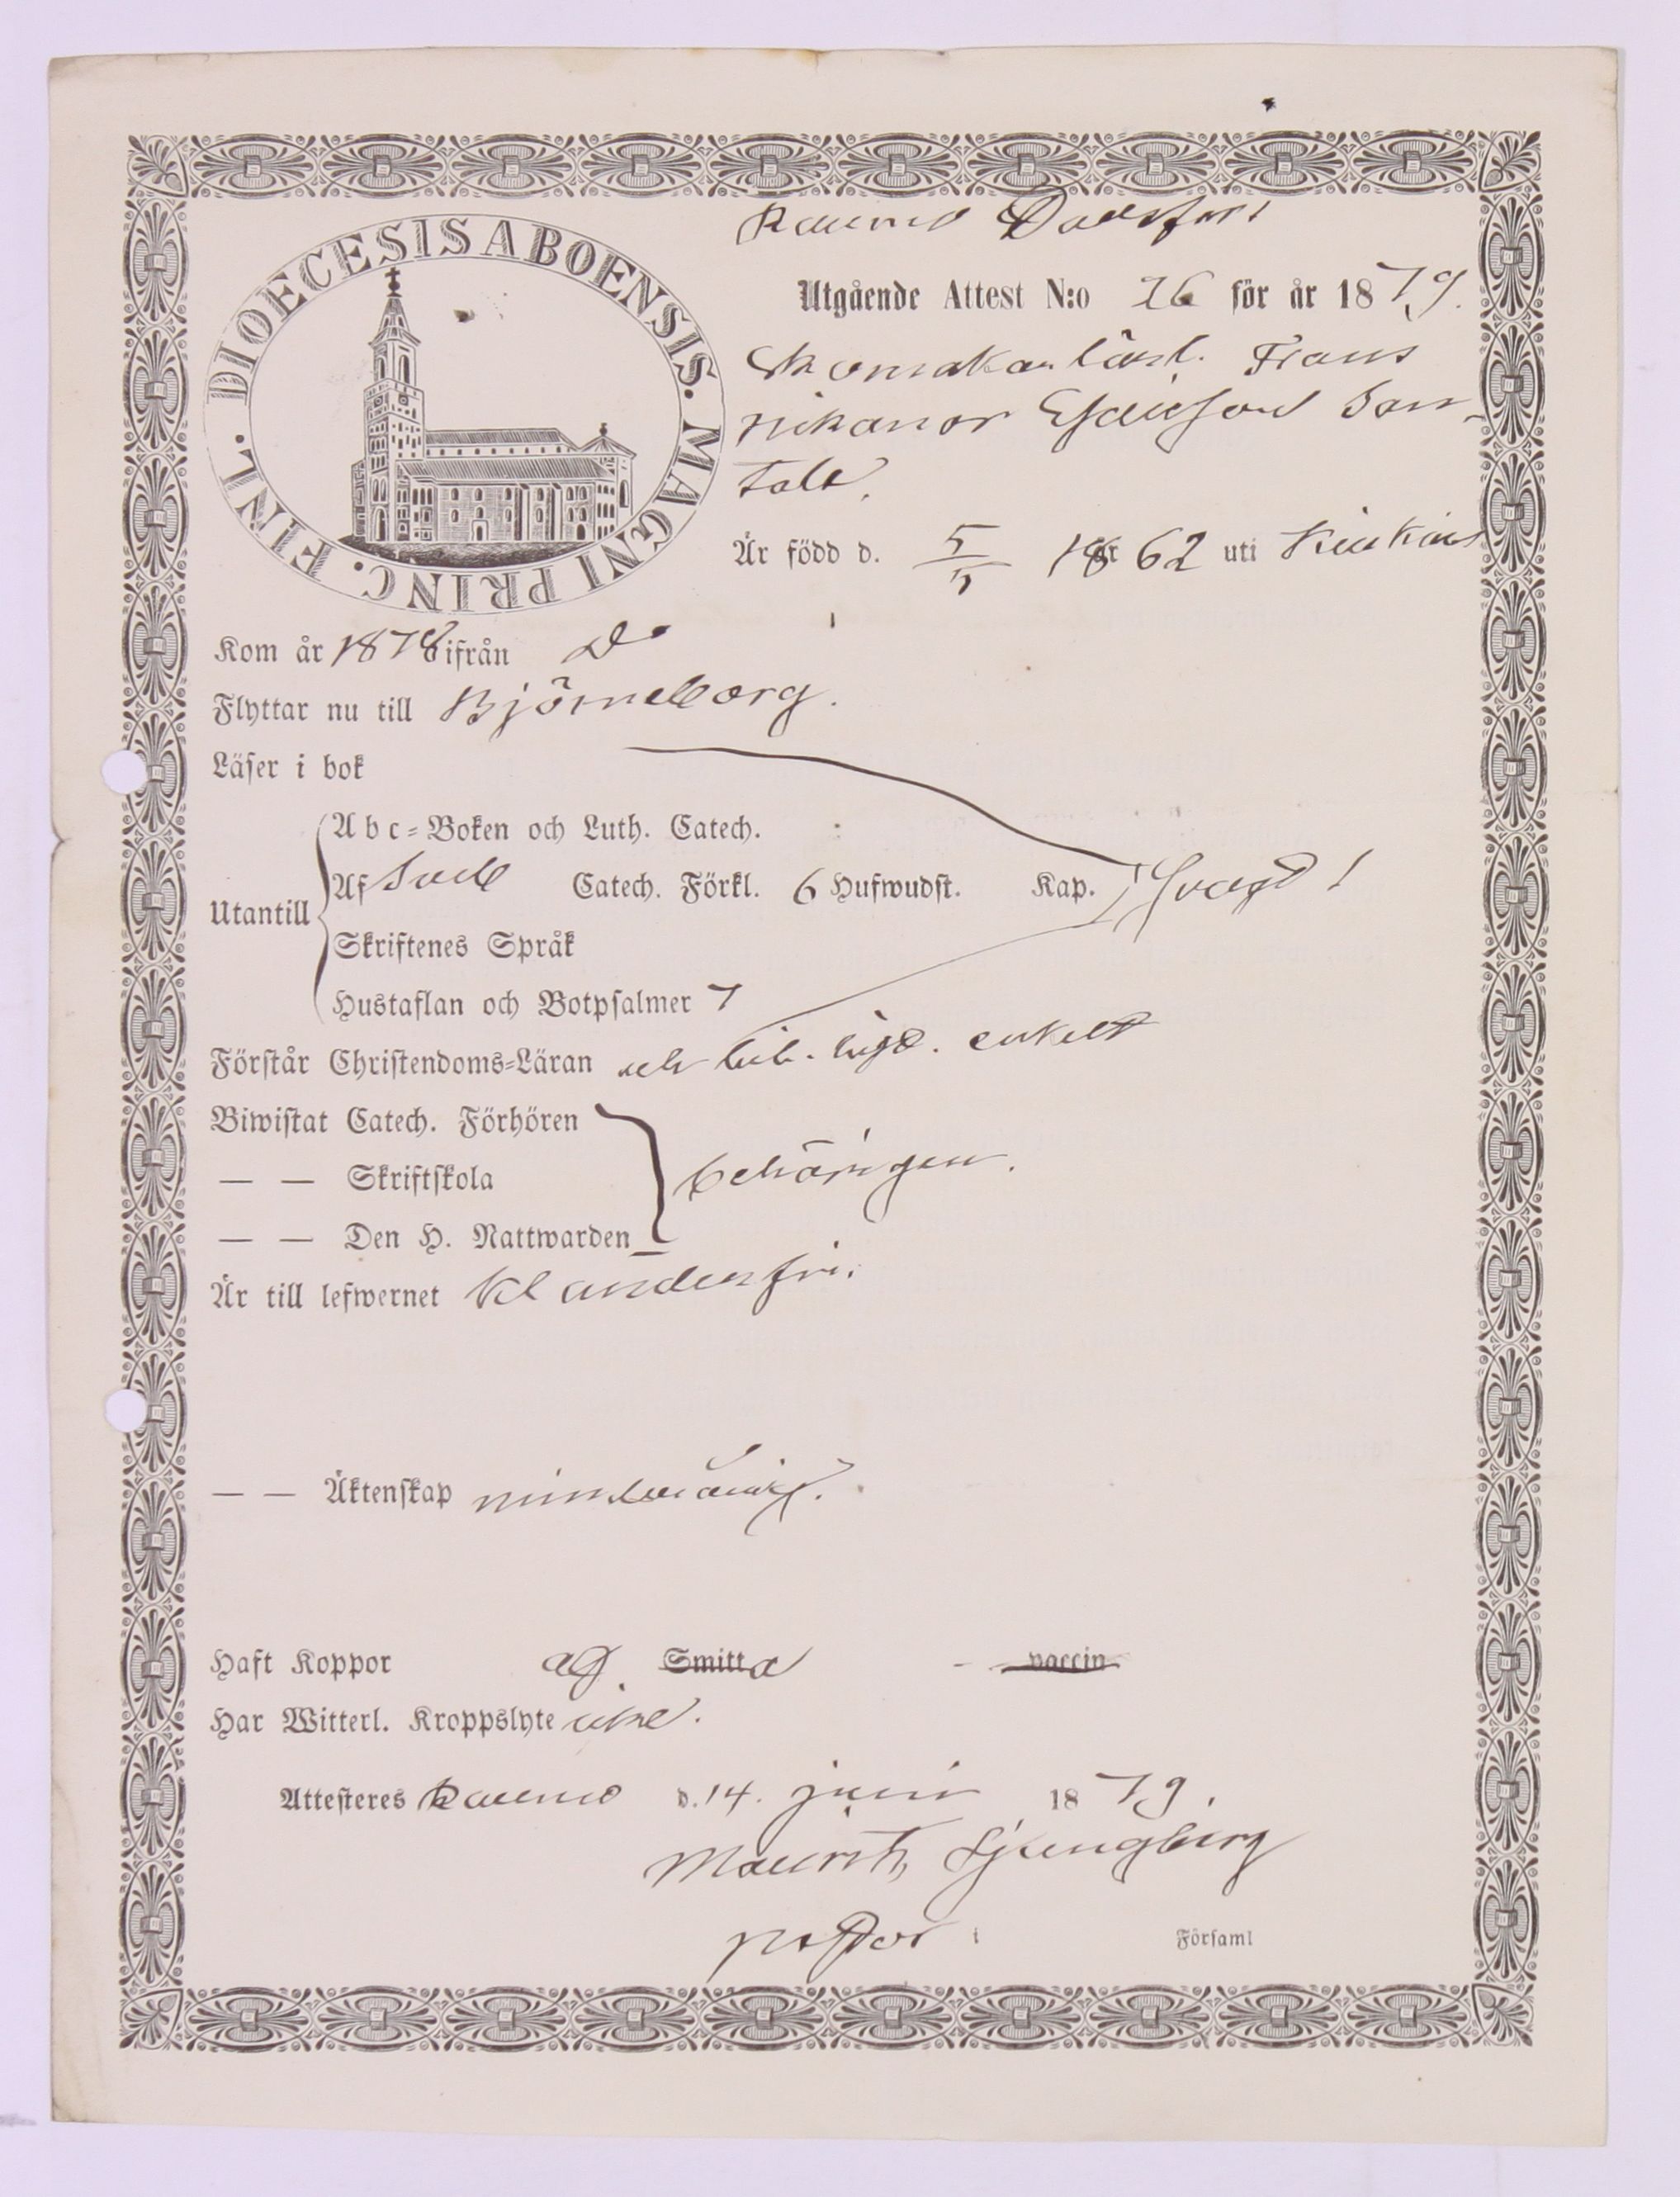 DIOECESIS ABOENSIS. MAGNI PRINC. FINL.
Raumo
Utgående Attest N:o 26 för år 1879.
Skomakarlärl. Frans
Nikanor Esaiisson San-
tala.
Är född d. 5/5 1862 uti Kiukais
Kom år 1878 ifrån Do
Flyttar nu till Björneborg.
Läser i bok
Abc-Boken och Luth. Catech.
Utantill
Af Sveb Catech. Förkl. 6 Hufwudst. Kap. svagt
Skriftenes Språk
Hustaflan och Botpsalmer 7
Förstår Christendoms-Läran och bib. enkelt
Biwistat Catech. Förhören
— — Skriftskola behörigen.
— — Den H. Nattwarden
Är till lefwernet klanderfri.
— — Äktenskap minderårig.
Haft Koppor af Smitta - vaccin
Har Witterl. Kroppslyte icke.
Attesteres Raumo d. 14. juni 1879.
Maurits Ljungberg
pastor i Församl